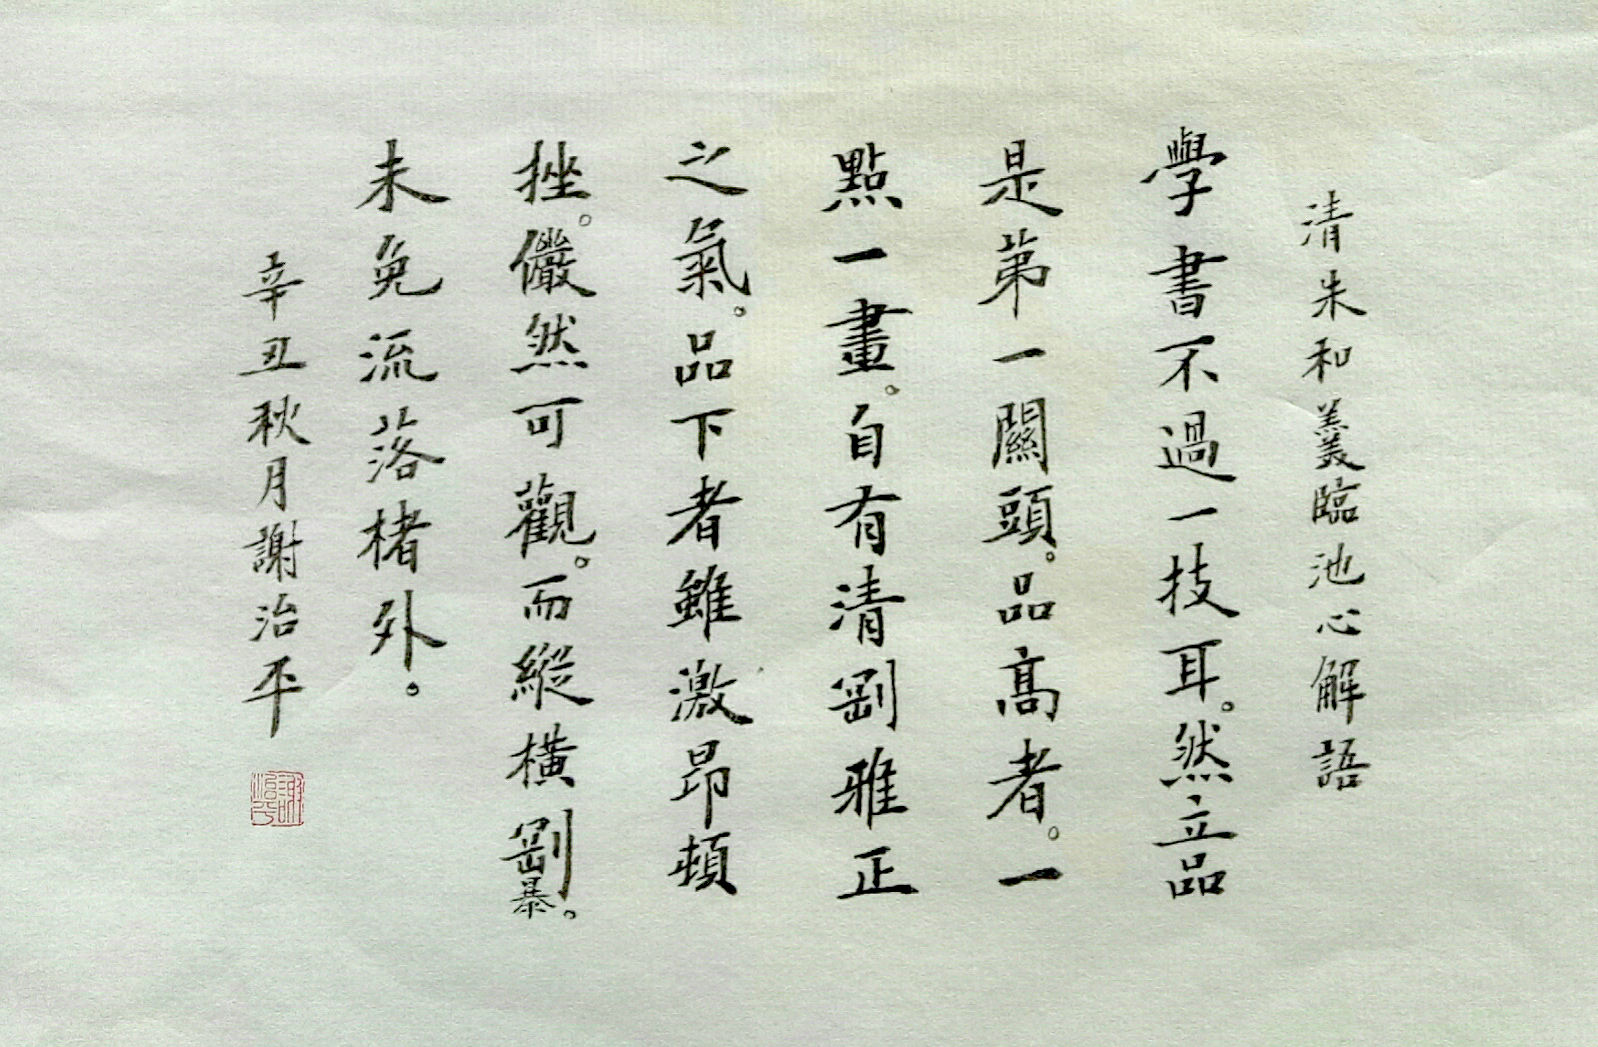 清朱和羲臨池心解語
學書不過一技耳。然立品
是第一關頭。品高者。一
點一畫。自有清剛雅正
之氣。品下者雖激昂頓
挫。儼然可觀。而縱橫剛暴。
未免流落楮外。
辛丑秋月謝治平
謝治平